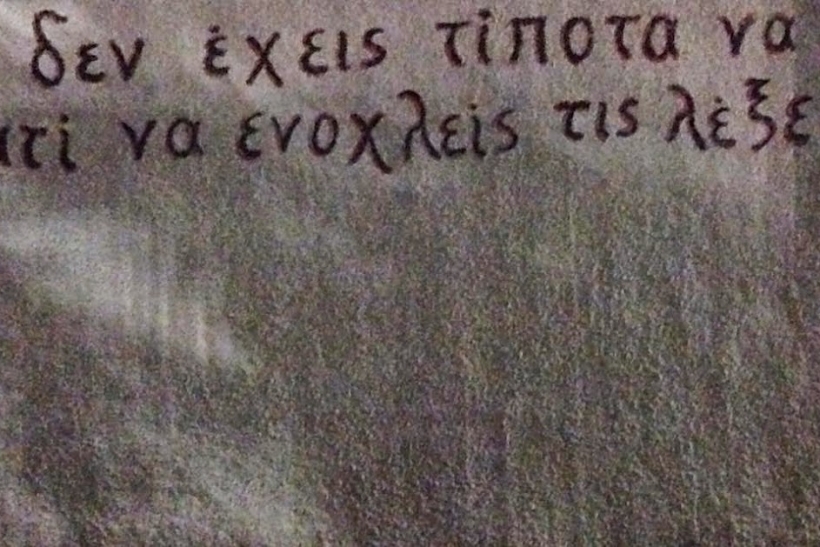 δεν έχεις τίποτα να
να ενοχλείς τις